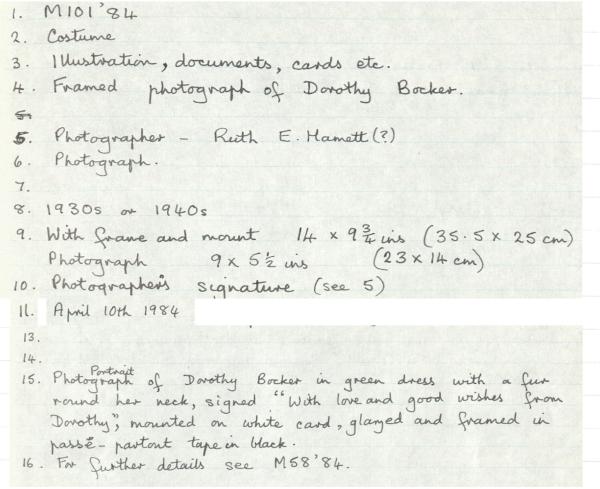 1. M101'84
2. Costume
3. Illustration, documents, cards etc.
4. Framed photograph of Dorothy Bocker.
5.
5. Photographer - Ruth E. Hamett (?)
6. Photograph.
7.
8. 1930s or 1940s
9. With frame and mount 14 x 9 3/4 ins (35.5 x 25 cm)
Photograph 9 x 5 1/2 ins (23 x 14 cm)
10. Photographer's signature (see 5)
11. April 10th 1984
13.
14.
Portrait
15. Photograph of Dorothy Bocker in green dress with a fur
round her neck, signed "With love and good wishes from
Dorothy", mounted on white card, glazed and framed in
passé-partout tape in black.
16. For further details see M58'84.